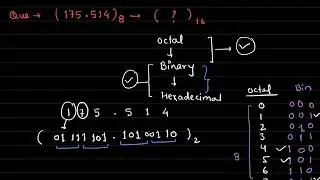 Que → (175.514)₈ → ( ? )₁₆
octal
↓
Binary
↓
Hexadecimal
1 7 5 . 5 1 4
( 01 111 101 . 101 001 10 )₂
octal Bin
0 0 0 0
1 0 0
2 0 1 0
3 0
4 1 0 0
5 1 0
6 1 1 0
8